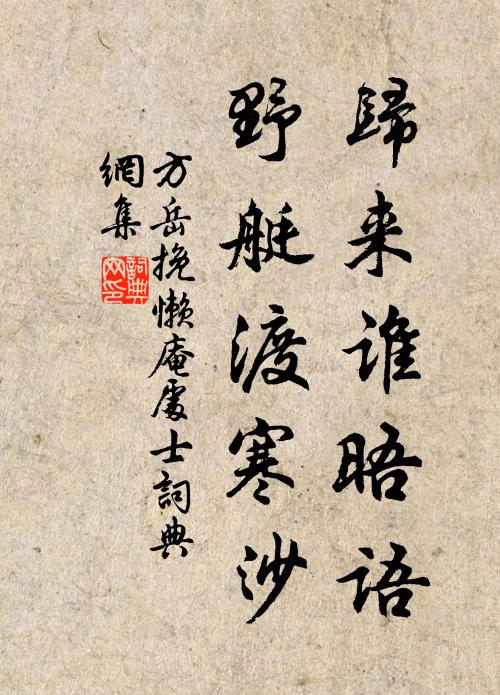 歸来谁晤语
野艇渡寒沙
方岳挽懒庵處士詞典
網集
詞典網印